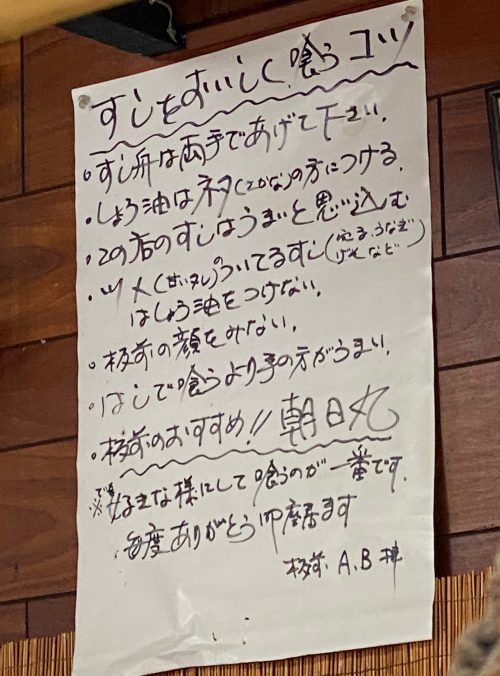 すしをおいしく喰うコツ
・すし舟は両手であげて下さい。
・しょう油はネタ(さかな)の方につける。
・この店のすしはうまいと思い込む
・ツメ(甘いタレ)のついてるすし(穴子、うなぎ
げそなど)
はしょう油をつけない。
・板前の顔をみない。
・はしで喰うより手の方がうまい。
・板前のおすすめ!!朝日丸
でも
※好きな様にして喰うのが一番です。
毎度ありがとう御座居ます
板前 A.B